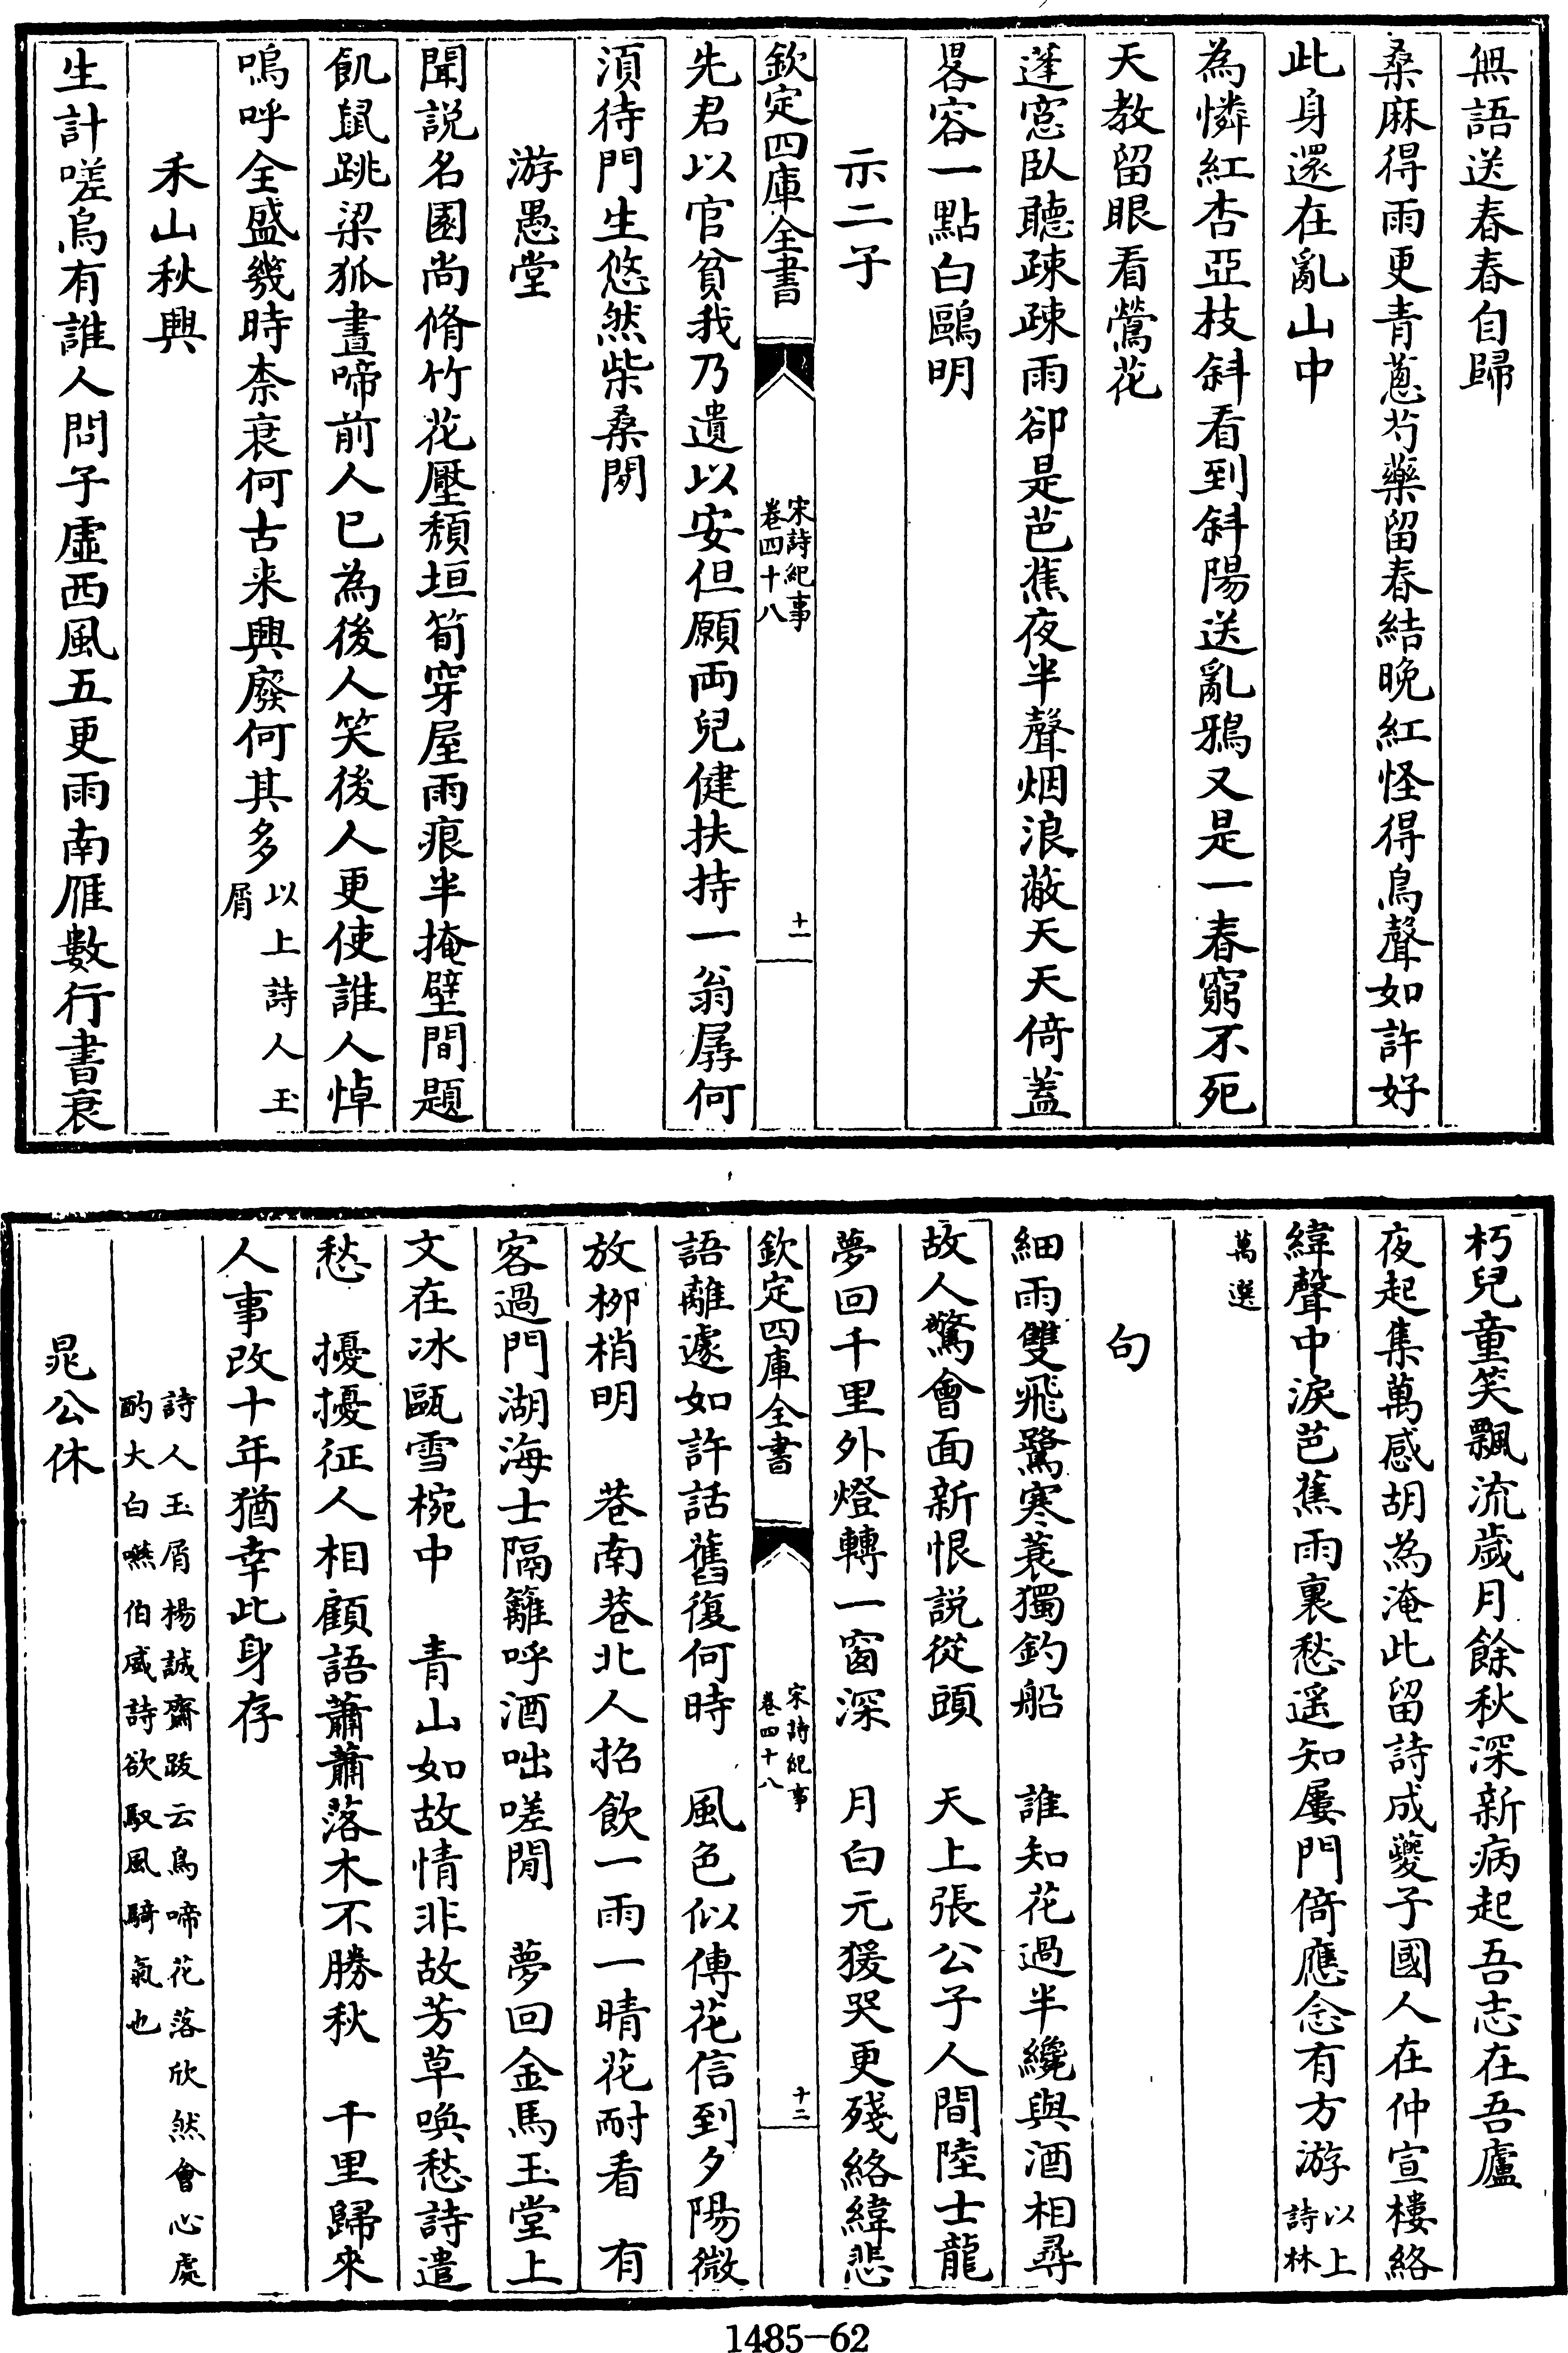 無語送春春自歸
桑麻得雨更青蔥芍藥留春結晚紅怪得鳥聲如許好
此身還在亂山中
為憐紅杏亞枝斜看到斜陽送亂鴉又是一春窮不死
天教留眼看鶯花
蓬窓臥聽疎疎雨卻是芭蕉夜半聲烟浪蔽天天倚蓋
畧容一點白鷗明
示二子
欽定四庫全書
宋詩紀事
卷四十八
十一
先君以官貧我乃遺以安但願兩兒健扶持一翁孱何
須待門生悠然柴桑間
游愚堂
聞説名園尚脩竹花壓頹垣筍穿屋雨痕半掩壁間題
飢鼠跳梁狐晝啼前人已為後人笑後人更使誰人悼
嗚呼全盛幾時柰衰何古来興廢何其多以上詩人玉
屑
禾山秋興
生計嗟烏有誰人問子虛西風五更雨南雁數行書衰
朽兒童笑飄流歲月餘秋深新病起吾志在吾廬
夜起集萬感胡為淹此留詩成夔子國人在仲宣樓絡
緯聲中淚芭蕉雨裏愁遥知屢門倚應念有方游以上
詩林
萬選
句
細雨雙飛鷺寒蓑獨釣船　誰知花過半纔與酒相尋
故人驚會面新恨説從頭　天上張公子人間陸士龍
夢回千里外燈轉一窗深　月白元猨哭更殘絡緯悲
欽定四庫全書
宋詩紀事
卷四十八
十二
語離遽如許話舊復何時　風色似傳花信到夕陽微
放柳梢明　巷南巷北人招飲一雨一晴花耐看　有
客過門湖海士隔籬呼酒咄嗟間　夢回金馬玉堂上
文在冰甌雪椀中　青山如故情非故芳草喚愁詩遣
愁　擾擾征人相顧語蕭蕭落木不勝秋　千里歸來
人事改十年猶幸此身存
詩人玉屑楊誠齋跋云鳥啼花落欣然會心處
酌大白嚥伯威詩欲馭風騎氣也
晁公休
1485—62